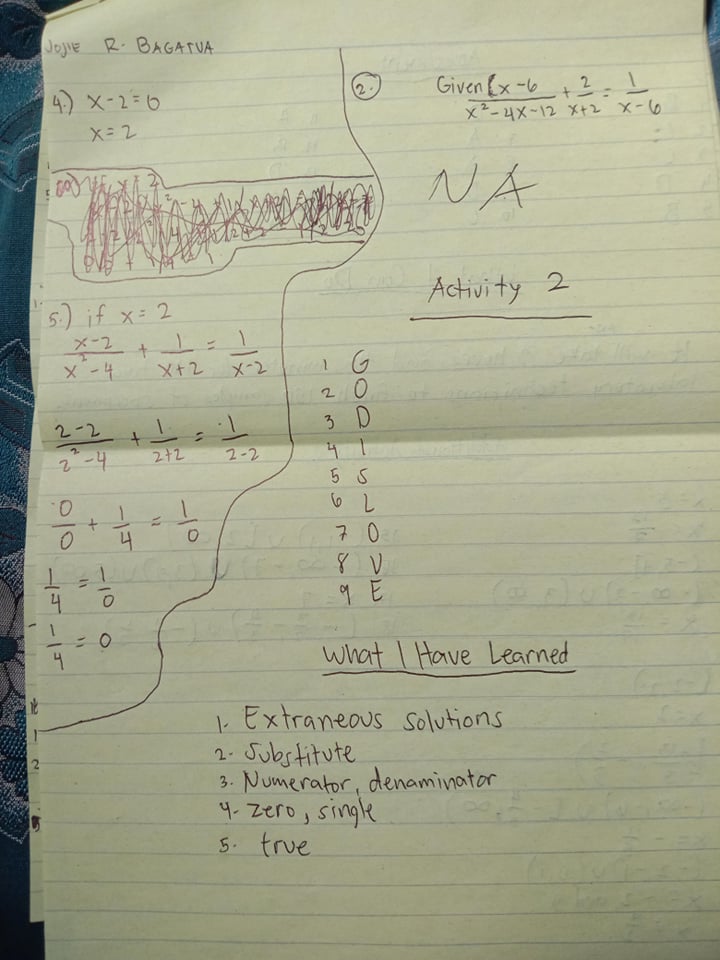 Jojie R. BAGATUA
4.) x-2=0
x=2
5.) if x=2
x-2/x²-4 + 1/x+2 = 1/x-2
2-2/2²-4 + 1/2+2 = 1/2-2
0/0 + 1/4 = 1/0
1/4 = 1/0
1/4 = 0
2. Given x-6/x²-4x-12 + 2/x+2 = 1/x-6
NA
Activity 2
1 G
2 O
3 D
4 I
5 S
6 L
7 O
8 V
9 E
What I Have Learned
1. Extraneous solutions
2. Substitute
3. Numerator, denaminator
4. zero, single
5. true